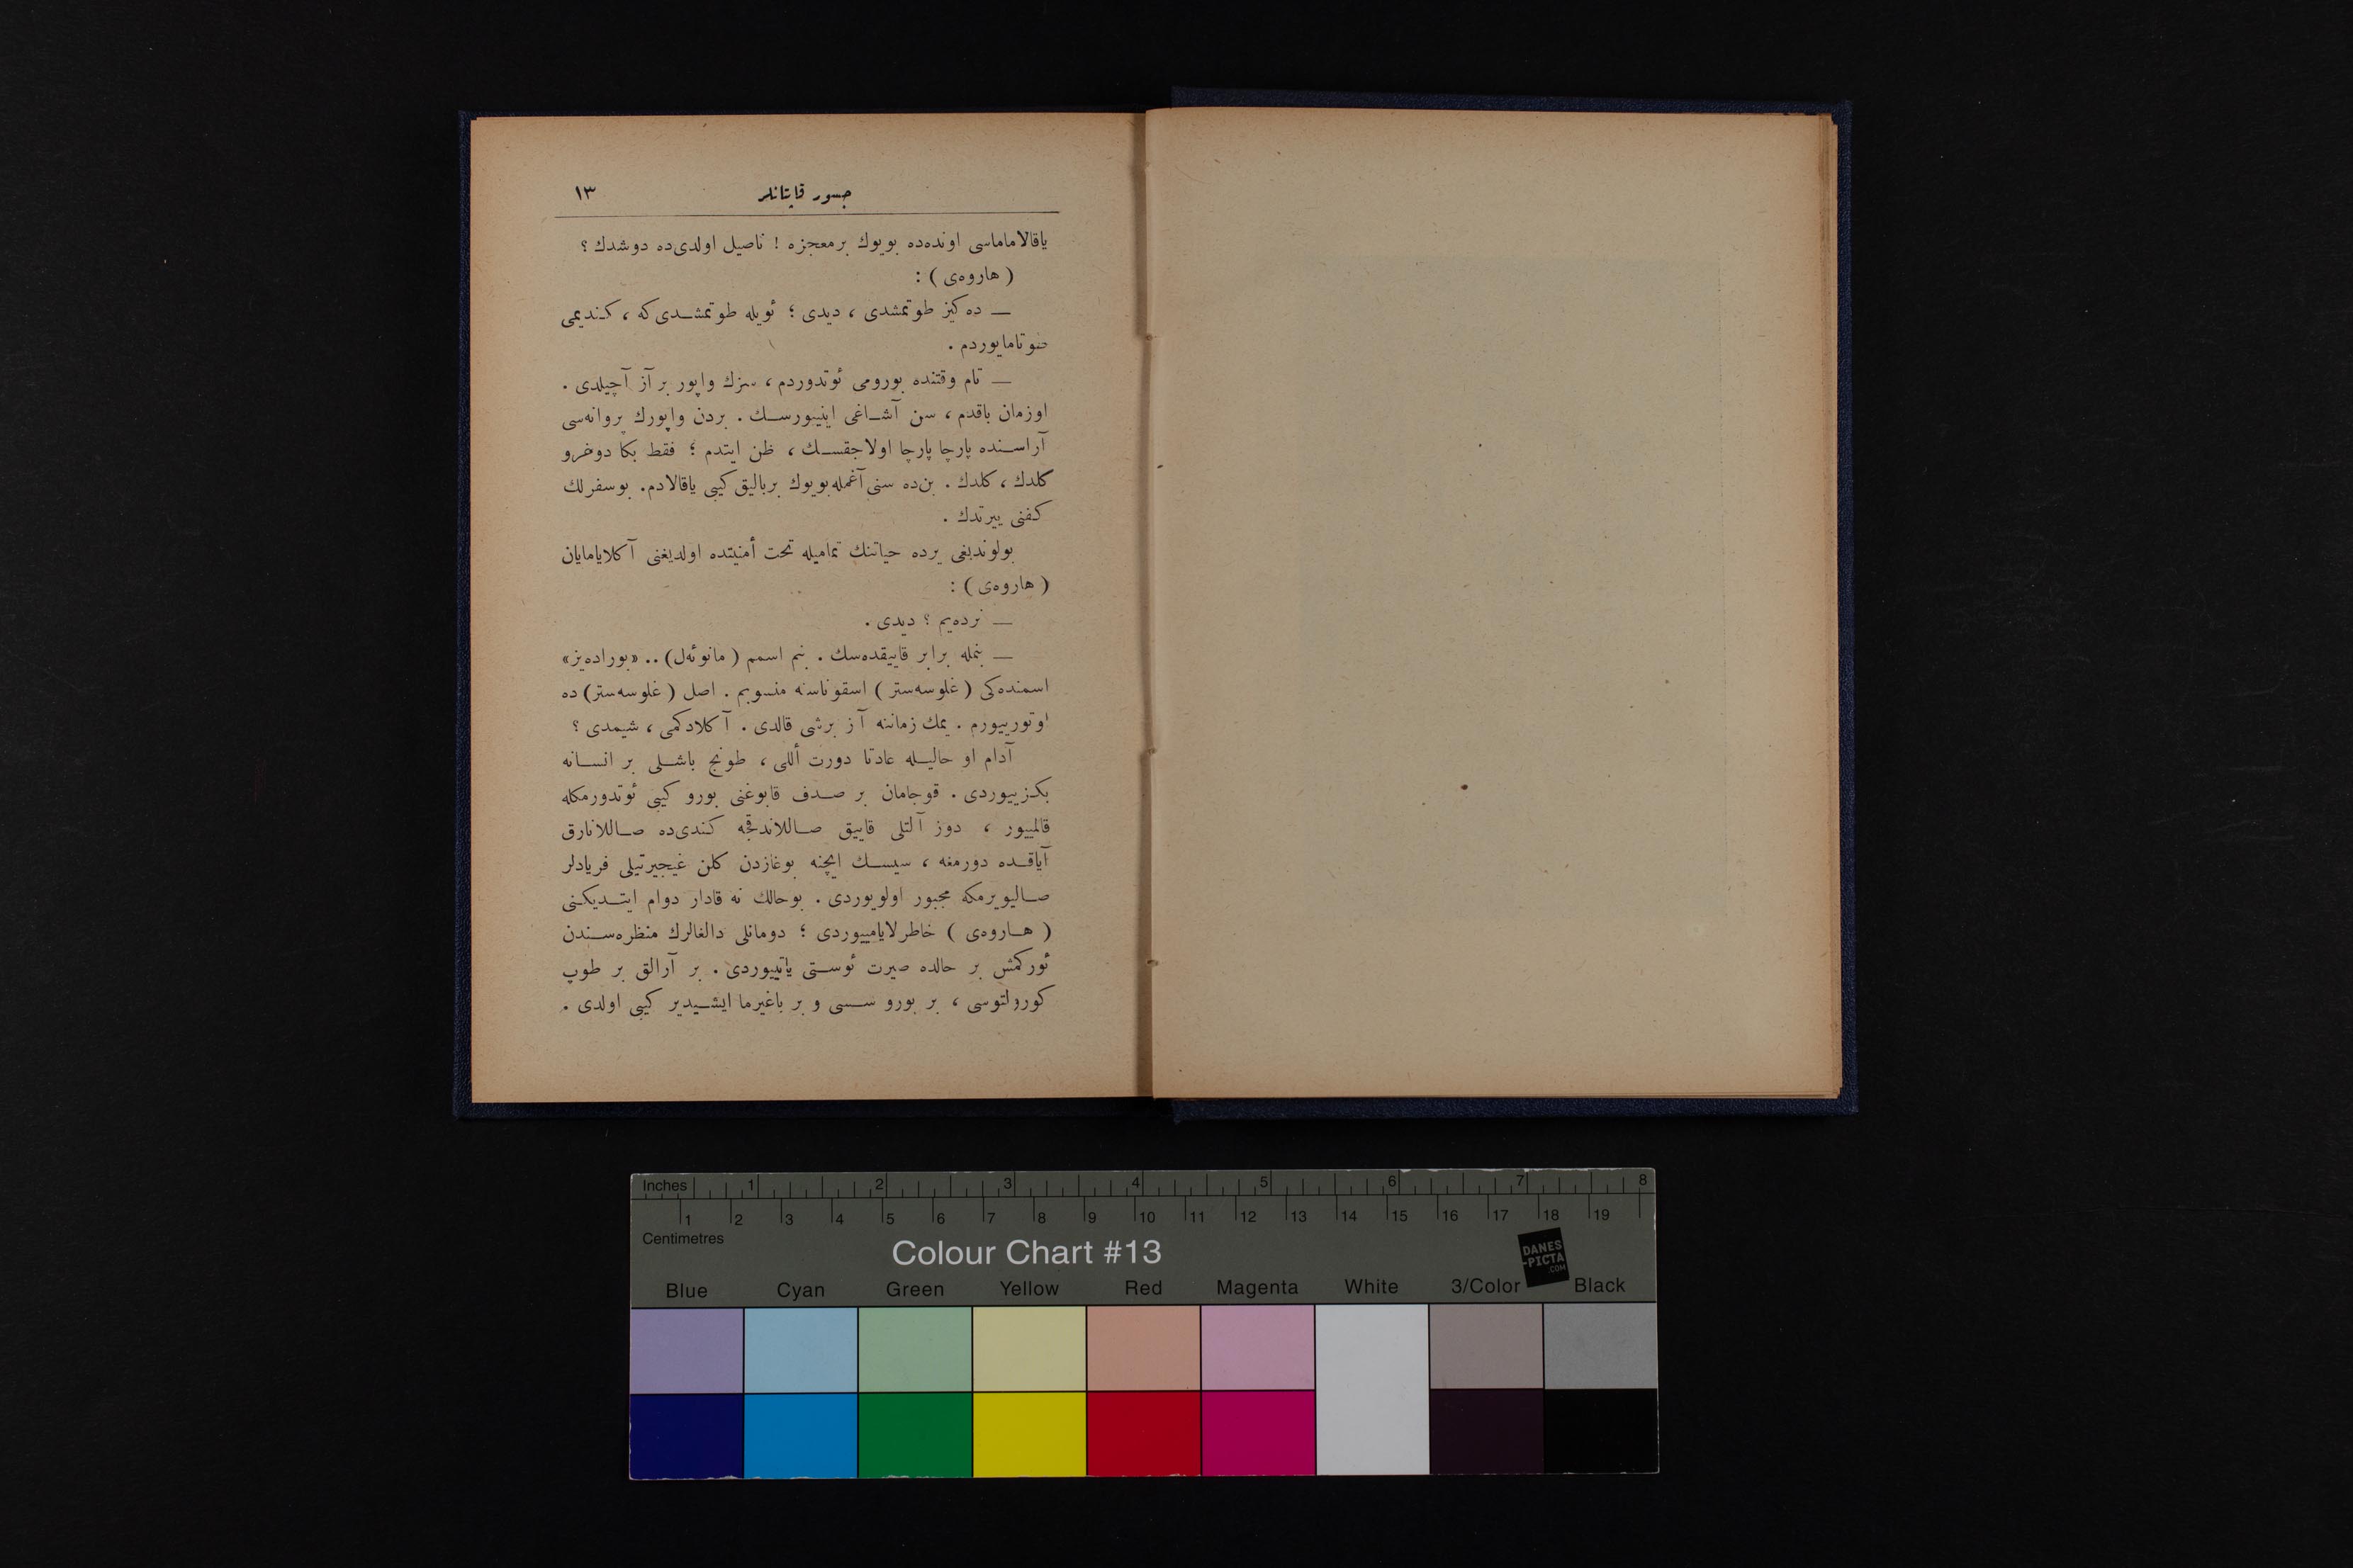 جسور قاپتانلر
١٣
ياقالاماماسی اونده‌ده بويوك برمعجزه ! ناصيل اولدی‌ده دوشدك ؟
( هاروه‌ی ) :
— ده كيز طوتمشدی ، ديدی ؛ ئويله طوتمشدی‌كه ، كنديمی
طوتامايوردم .
— تام وقتنده بورومی ئوتدوردم ، سزك واپور بر آز آچيلدی .
اوزمان باقدم ، سن آشاغی اينييورسك . بردن واپورك پروانه‌سی
آراسنده پارچا پارچا اولاجقسك ، ظن ايتدم ؛ فقط بكا دوغرو
كلدك ، كلدك . بن‌ده سنی آغمله بويوك برباليق كيبی ياقالادم. بوسفرلك
كفنی ييرتدك .
بولونديغی يرده حياتنك تماميله تحت أمنيتده اولديغنی آكلايامايان
( هاروه‌ی ) :
— نرده‌يم ؟ ديدی .
— بنمله برابر قاييقده‌سك . بنم اسمم ( مانوئه‌ل) .. «بوراده‌يز»
اسمنده‌كی ( غلوسه‌ستر ) اسقوناسنه منسوبم . اصل ( غلوسه‌ستر) ده
اوتورييورم . يمك زماننه آز برشی قالدی . آكلادكمی ، شيمدی ؟
آدام او حاليله عادتا دورت أللی ، طونج باشلی بر انسانه
بكزييوردی . قوجامان بر صدف قابوغنی بورو كيبی ئوتدورمكله
قالمييور ، دوز آلتلی قاييق صاللاندقجه كندی‌ده صاللانارق
آياقده دورمغه ، سيسك ايچنه بوغازدن كلن غيجيرتيلی فريادلر
صاليويرمكه مجبور اولويوردی . بوحالك نه قادار دوام ايتديكنی
( هاروه‌ی ) خاطرلايامييوردی ؛ دومانلی دالغالرك منظره‌سندن
ئوركمش بر حالده صيرت ئوستی ياتييوردی . بر آرالق بر طوپ
كورولتوسی ، بر بورو سسی و بر باغيرما ايشيدير كيبی اولدی .
Inches 1 2 3 4 5 6 7 8
1 2 3 4 5 6 7 8 9 10 11 12 13 14 15 16 17 18 19
Centimetres
Colour Chart #13
DANES
-PICTA
.COM
Blue Cyan Green Yellow Red Magenta White 3/Color Black